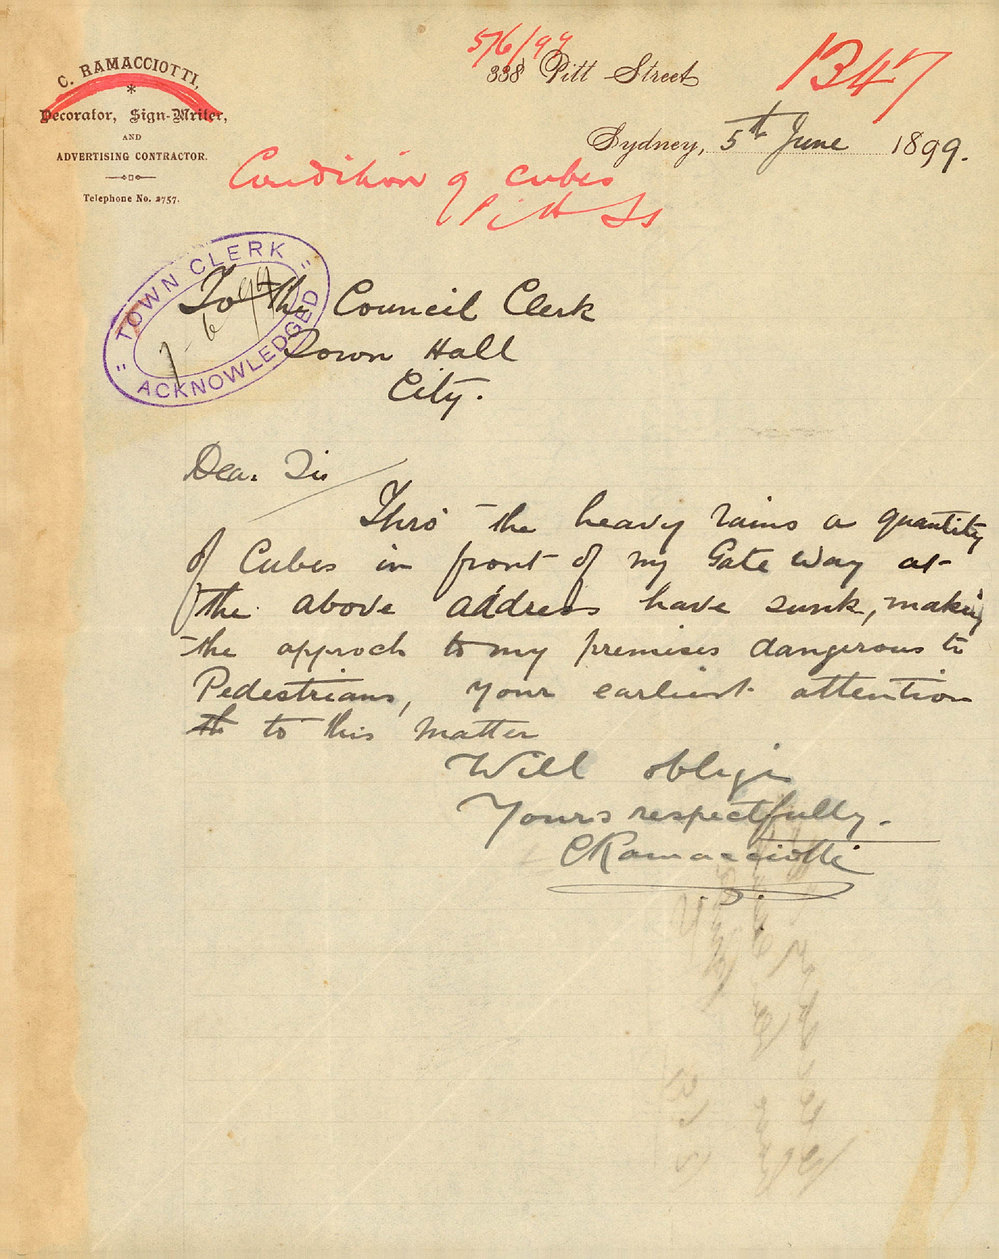 C. RAMACCIOTTI,
Decorator, Sign-Writer,
AND
ADVERTISING CONTRACTOR.
Telephone No. 2757.
5/6/99
1347
338 Pitt Street
Sydney, 5th June 1899.
Condition of cubes
Pitt St
TOWN CLERK
7-6-99
ACKNOWLEDGED
To the Council Clerk
Town Hall
City.
Dear Sir
Thro' the heavy rains a quantity
of Cubes in front of my Gate way at
the above address have sunk, making
the approch to my premises dangerous to
Pedestrians, your earliest attention
th to this matter
Will oblige
Yours respectfully.
C Ramacciotti